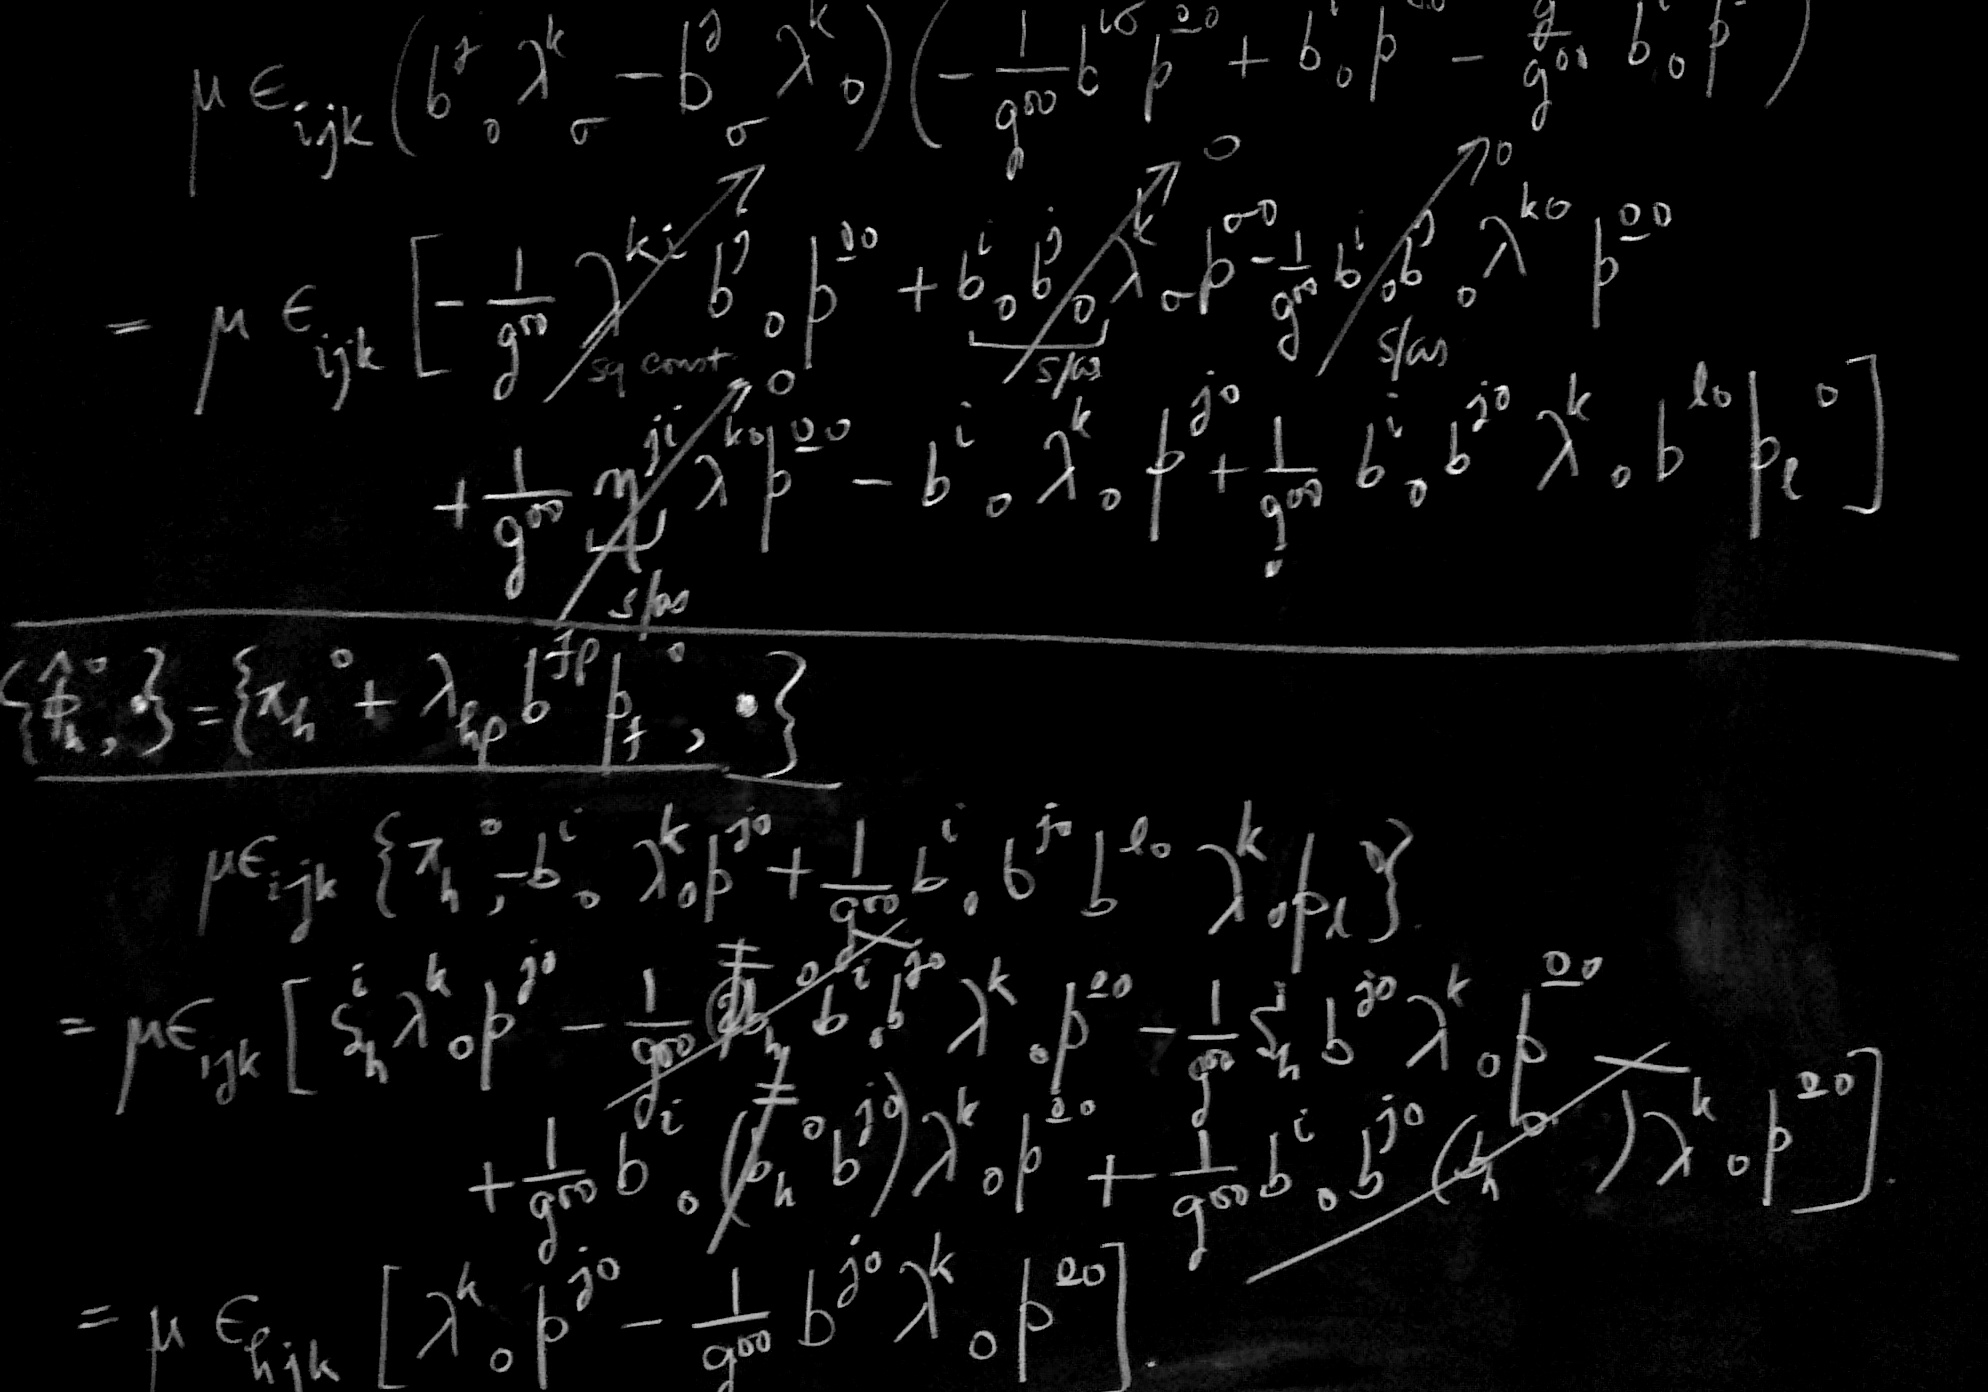 μ ε_{ijk} (b^j_0 λ^k_σ − b^j_σ λ^k_0)(− 1/g^{00} b^{iσ} p^{00} + b^i_0 p − g/g^{00} b^i_0 p)
= μ ε_{ijk} [− 1/g^{00} λ^{ki} b^j_0 p^{00} + b^i_0 b^j_0 λ^k_σ p^{σ0} − 1/g^{00} b^i_0 b^j_0 λ^{k0} p^{00}
sq const 0 s/as 0 s/as 0
+ 1/g^{00} η^{ji} λ^{k0} p^{00} − b^i_0 λ^k_0 p^{j0} + 1/g^{00} b^i_0 b^{j0} λ^k_0 b^{l0} p_l^0]
s/as
{φ̂_h^0, •} = {π_h^0 + λ_{hp} b^{fp} p_f^0, •}
μ ε_{ijk} {π_h^0, −b^i_0 λ^k_0 p^{j0} + 1/g^{00} b^i_0 b^{j0} b^{l0} λ^k_0 p_l^0}
= μ ε_{ijk} [δ^i_h λ^k_0 p^{j0} − 1/g^{00} (b_h^0 b^i_0 b^{j0} λ^k_0 p^{00} − 1/g^{00} δ^i_h b^{j0} λ^k_0 p^{00}
+ 1/g^{00} b^i_0 (b_h^0 b^{j0}) λ^k_0 p^{00} + 1/g^{00} b^i_0 b^{j0} (b_h^0) λ^k_0 p^{00}].
= μ ε_{hjk} [λ^k_0 p^{j0} − 1/g^{00} b^{j0} λ^k_0 p^{00}].